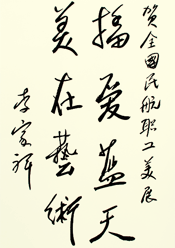 贺全國民航职工美展
播爱蓝天
美在藝術
李家祥